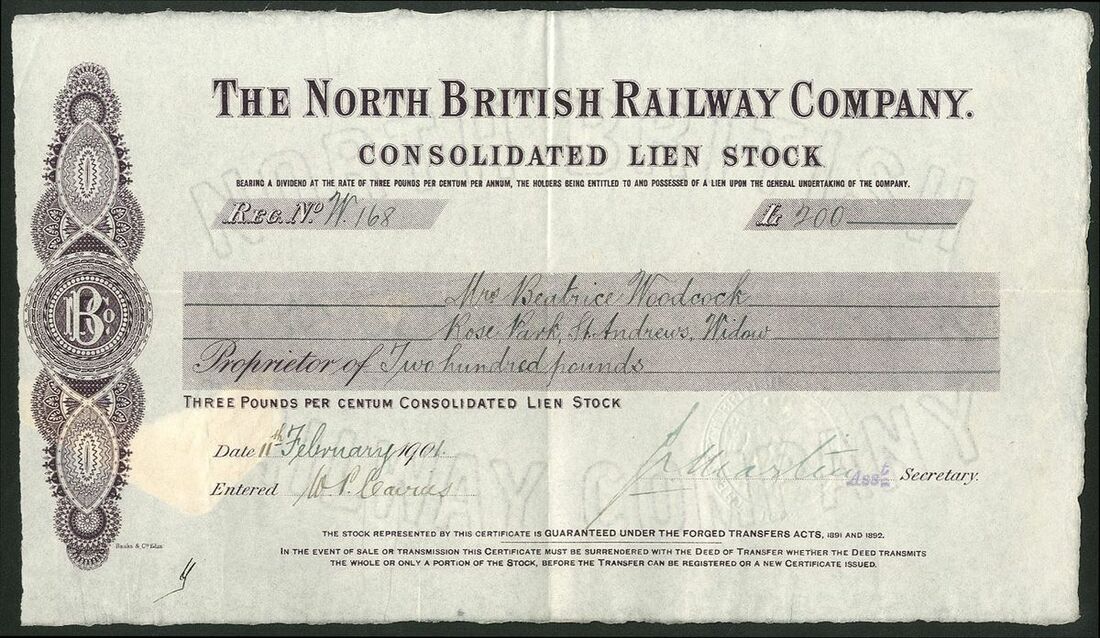 THE NORTH BRITISH RAILWAY COMPANY.
CONSOLIDATED LIEN STOCK
BEARING A DIVIDEND AT THE RATE OF THREE POUNDS PER CENTUM PER ANNUM, THE HOLDERS BEING ENTITLED TO AND POSSESSED OF A LIEN UPON THE GENERAL UNDERTAKING OF THE COMPANY.
REG. No. W. 168 £ 200
Mrs Beatrice Woodcock
Rose Park, St. Andrews, Widow
Proprietor of Two hundred pounds
THREE POUNDS PER CENTUM CONSOLIDATED LIEN STOCK
Date 11th February, 1901.
Entered
J. Martin Asst Secretary.
THE STOCK REPRESENTED BY THIS CERTIFICATE IS GUARANTEED UNDER THE FORGED TRANSFERS ACTS, 1891 AND 1892.
Banks & Co Edin
IN THE EVENT OF SALE OR TRANSMISSION THIS CERTIFICATE MUST BE SURRENDERED WITH THE DEED OF TRANSFER WHETHER THE DEED TRANSMITS
THE WHOLE OR ONLY A PORTION OF THE STOCK, BEFORE THE TRANSFER CAN BE REGISTERED OR A NEW CERTIFICATE ISSUED.